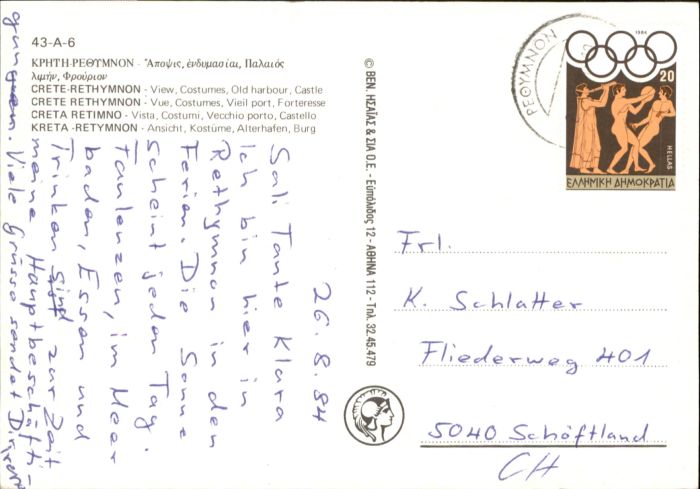 43-A-6
ΚΡΗΤΗ-ΡΕΘΥΜΝΟΝ - Ἄποψις, ἐνδυμασίαι, Παλαιός
λιμήν, Φρούριον
CRETE-RETHYMNON - View, Costumes, Old harbour, Castle
CRETE RETHYMNON - Vue, Costumes, Vieil port, Forteresse
CRETA RETIMNO - Vista, Costumi, Vecchio porto, Castello
KRETA -RETYMNON - Ansicht, Kostüme, Alterhafen, Burg
26.8.84
Sali Tante Klara
Ich bin hier in
Rethymnon in den
Ferien. Die Sonne
scheint jeden Tag.
Faulenzen, im Meer
baden, Essen und
Trinken sind zur Zeit
meine Hauptbeschäfti-
gungen. Viele Grüsse sendet Dir
© ΒΕΝ. ΗΣΑΪΑΣ & ΣΙΑ Ο.Ε. - Εὐπόλιδος 12 - ΑΘΗΝΑ 112 - Τηλ. 32 45.479
ΡΕΘΥΜΝΟΝ
1984
20
HELLAS
ΕΛΛΗΝΙΚΗ ΔΗΜΟΚΡΑΤΙΑ
Frl.
K. Schlatter
Fliederweg 401
5040 Schöftland
CH